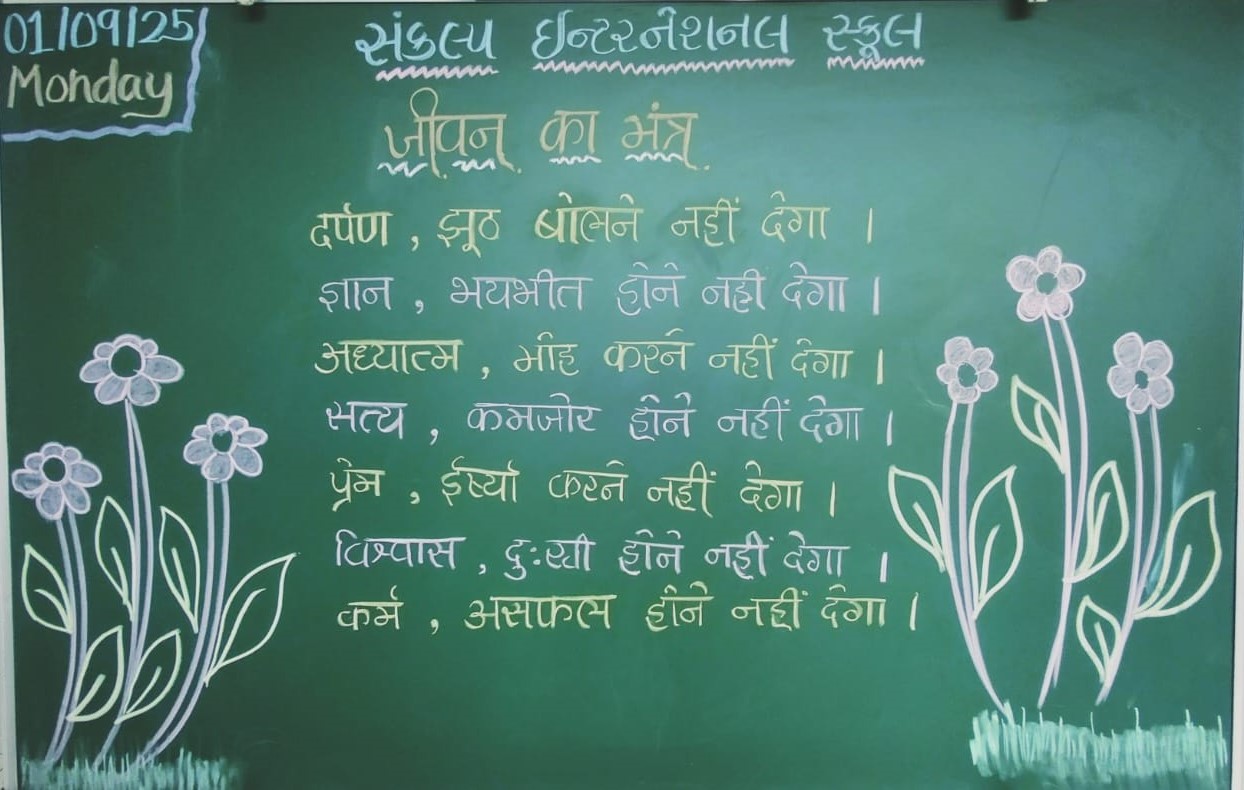 01/09/25
Monday
સંકલ્પ ઈન્ટરનેશનલ સ્કૂલ
जीवन का मंत्र
दर्पण , झूठ बोलने नहीं देगा ।
ज्ञान , भयभीत होने नही देगा ।
अध्यात्म , मोह करने नहीं देगा ।
सत्य , कमजोर होने नहीं देगा ।
प्रेम , ईर्ष्या करने नहीं देगा ।
विश्वास , दुःखी होने नहीं देगा ।
कर्म , असफल होने नहीं देगा ।